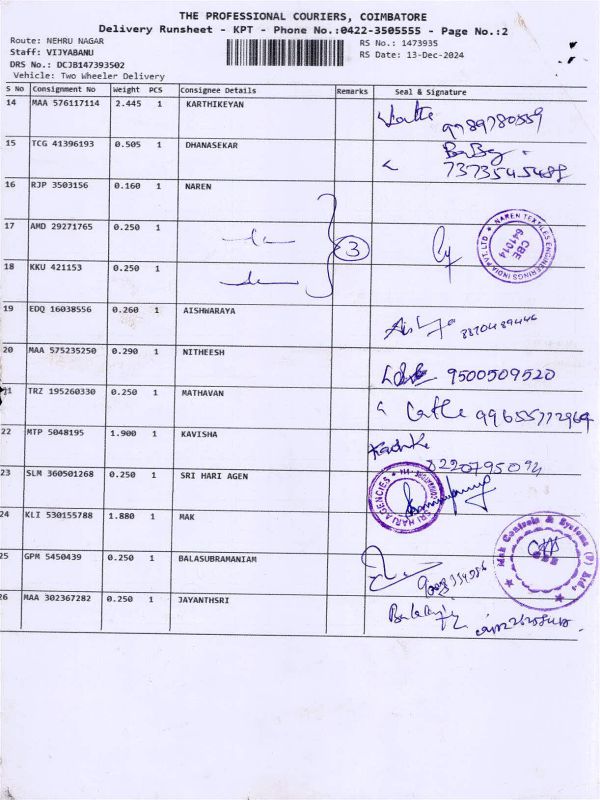 THE PROFESSIONAL COURIERS, COIMBATORE
Delivery Runsheet - KPT - Phone No.:0422-3505555 - Page No.:2
Route: NEHRU NAGAR RS No.: 1473935
Staff: VIJYABANU RS Date: 13-Dec-2024
DRS No.: DCJB147393502
Vehicle: Two Wheeler Delivery
S No Consignment No Weight PCS Consignee Details Remarks Seal & Signature
14 MAA 576117114 2.445 1 KARTHIKEYAN 9789780559
15 TCG 41396193 0.505 1 DHANASEKAR
7373545488
16 RJP 3503156 0.160 1 NAREN
17 AMD 29271765 0.250 1 3 NAREN TEXTILES ENGINEERINGS INDIA PVT LTD CBE 641014
18 KKU 421153 0.250 1
19 EDQ 16038556 0.260 1 AISHWARAYA
20 MAA 575235250 0.290 1 NITHEESH 9500509520
21 TRZ 195260330 0.250 1 MATHAVAN
22 MTP 5048195 1.900 1 KAVISHA
23 SLM 360501268 0.250 1 SRI HARI AGEN SRI HARI AGENCIES
24 KLI 530155788 1.880 1 MAK Mak Controls & Systems (P) Ltd.,
25 GPM 5450439 0.250 1 BALASUBRAMANIAM
26 MAA 302367282 0.250 1 JAYANTHSRI